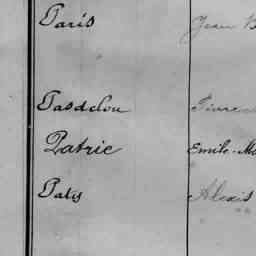 Paris Jean
Pasdelou Pierre
Patric Emile-Ma
Paty Alexis